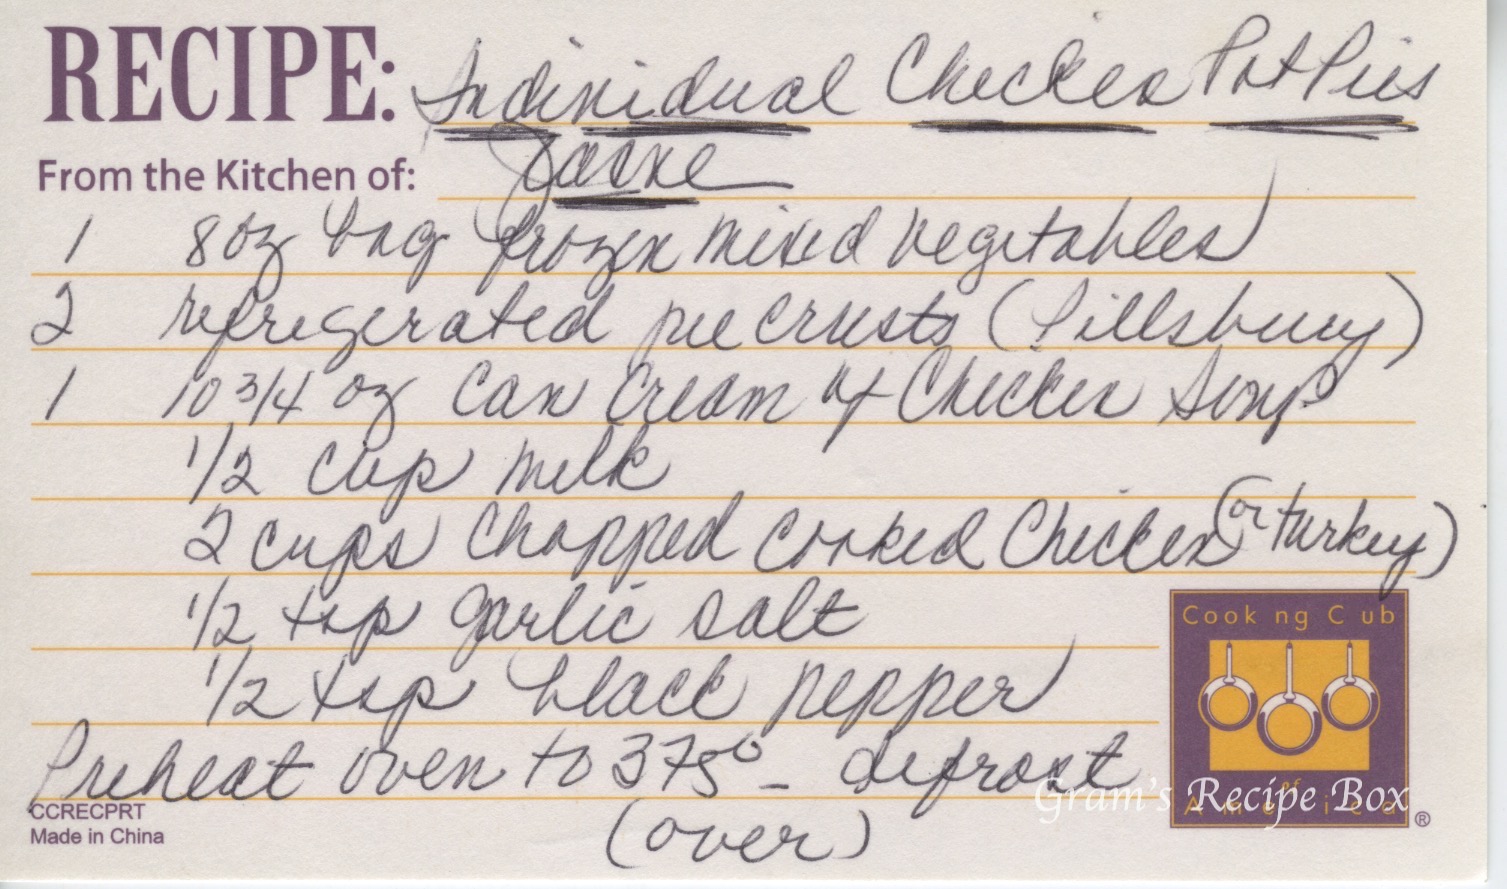 RECIPE: Individual Chicken Pot Pies
From the Kitchen of: Jackie
1 8 oz bag frozen mixed vegetables
2 refrigerated pie crusts (Pillsbury)
1 10 3/4 oz can Cream of Chicken Soup
1/2 cup milk
2 cups chopped cooked Chicken (or turkey)
1/2 tsp garlic salt
1/2 tsp black pepper
Preheat oven to 375° - defrost
(over)
Cook ng C ub
of
Ame ica ®
Gram's Recipe Box
CCRECPRT
Made in China